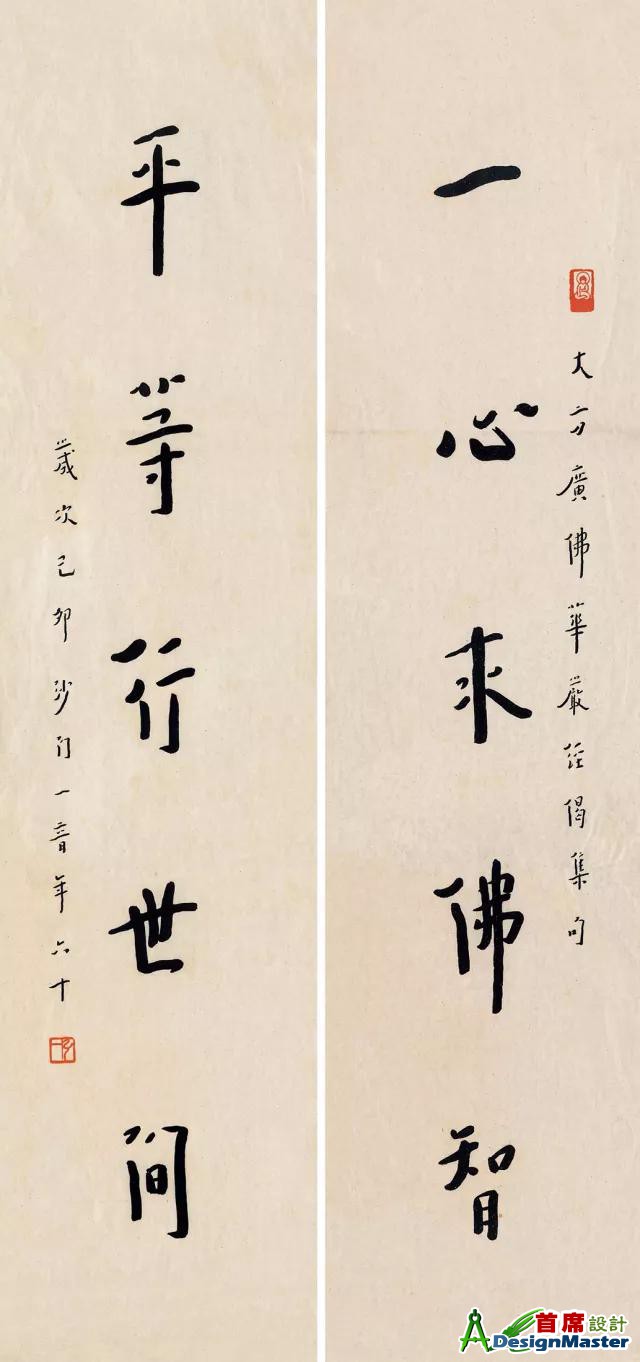 大方廣佛華嚴經偈集句
一心求佛智
平等行世間
歲次己卯沙門一音年六十
首席設計
DesignMaster